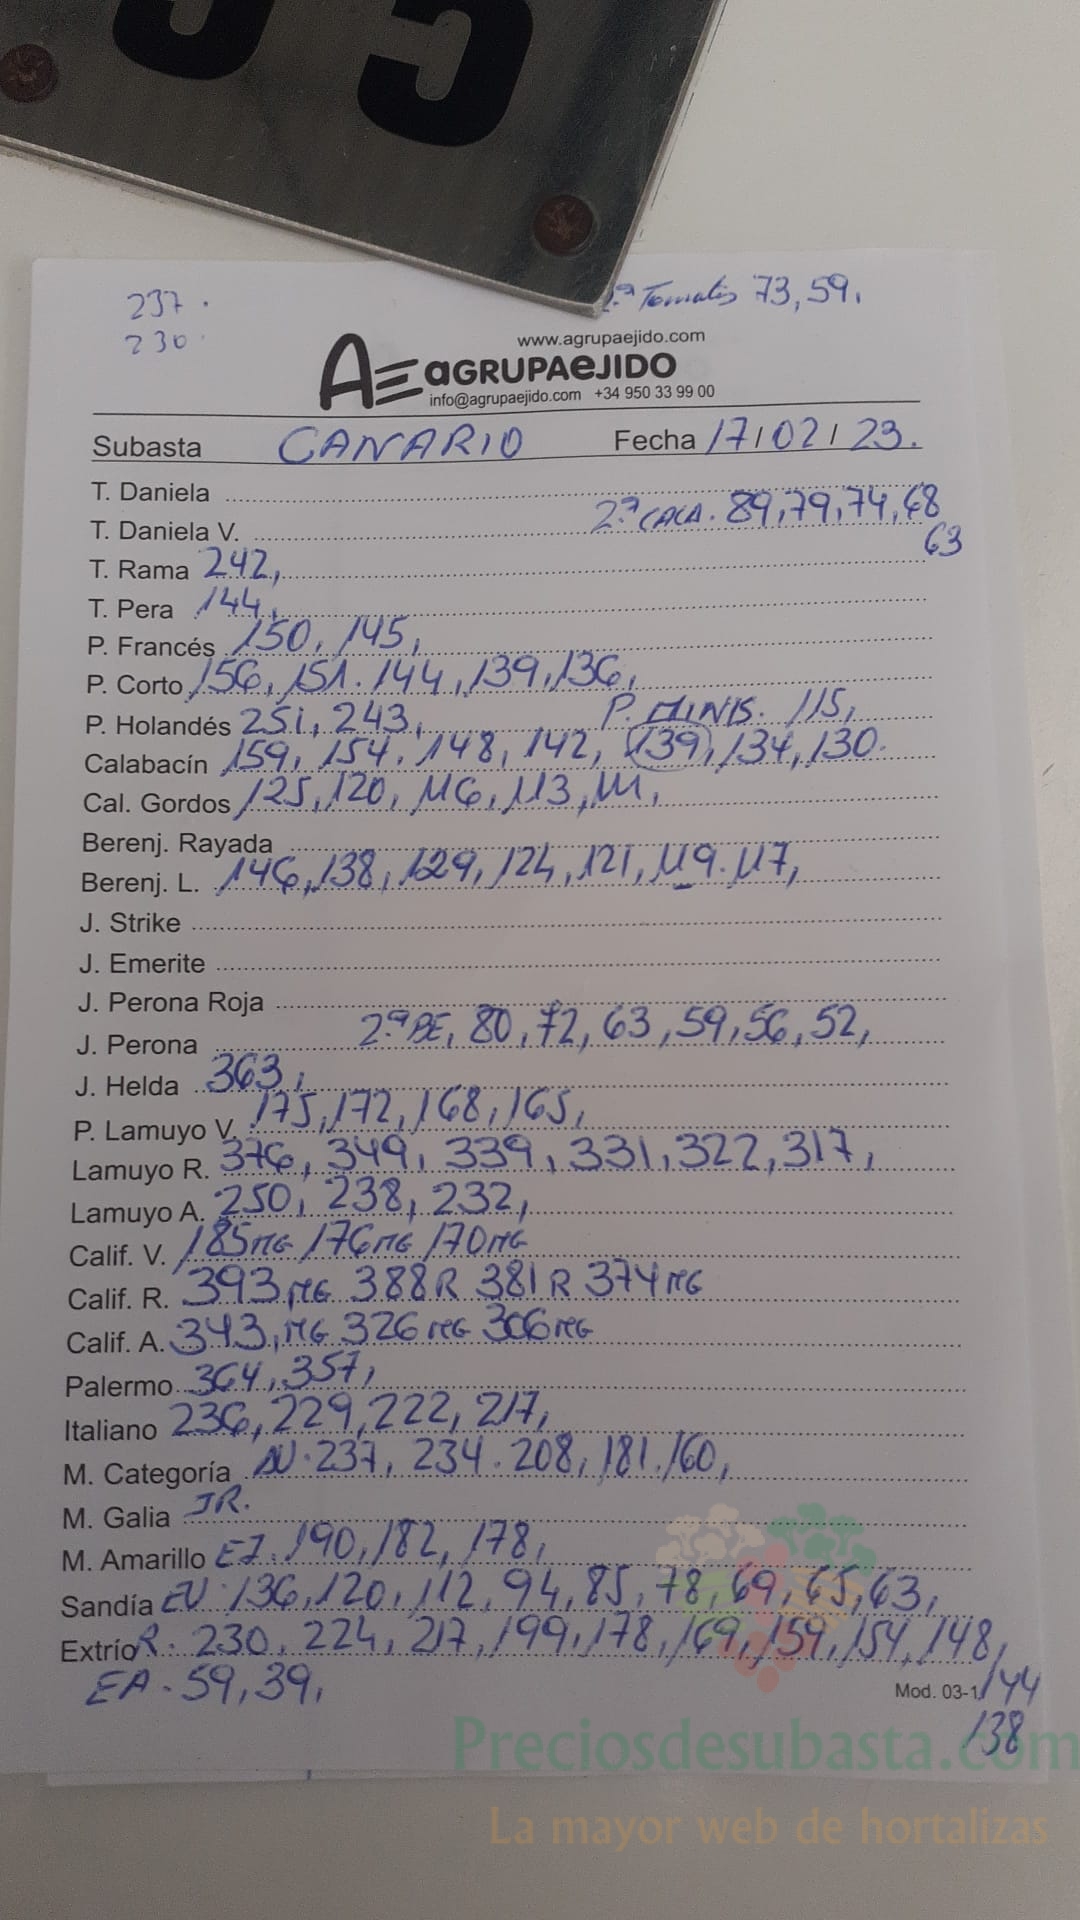 55
237.
230.
2ª Tomates 73, 59.
www.agrupaejido.com
AE aGRUPAeJIDO
info@agrupaejido.com +34 950 33 99 00
Subasta CANARIO Fecha 17/02/23.
T. Daniela
2ª CACA. 89, 79, 74, 68
T. Daniela V.
63
T. Rama 242,
T. Pera 144,
P. Francés 150, 145,
P. Corto 156, 151. 144, 139, 136,
P. Holandés 251, 243, P. MINIS. 115,
Calabacín 159, 154, 148, 142, 139, 134, 130.
Cal. Gordos 125, 120, 116, 113, 111,
Berenj. Rayada
Berenj. L. 146, 138, 129, 124, 121, 119. 117,
J. Strike
J. Emerite
J. Perona Roja
2ª BE, 80, 72, 63, 59, 56, 52,
J. Perona
J. Helda 363,
P. Lamuyo V. 175, 172, 168, 165,
Lamuyo R. 376, 349, 339, 331, 322, 317,
Lamuyo A. 250, 238, 232,
Calif. V. 185MG 176MG 170MG
Calif. R. 393, MG 388R 381R 374MG
Calif. A. 343, MG 326MG 306MG
Palermo 364, 357,
Italiano 236, 229, 222, 217,
M. Categoría 237, 234. 208, 181. 160,
M. Galia JR.
M. Amarillo EJ. 190, 182, 178,
Sandía EU. 136, 120, 112, 94, 85, 78, 69, 65, 63,
Extrío R. 230, 224, 217, 199, 178, 169, 159, 154, 148,
EA. 59, 39,
Mod. 03-1 144
138
Preciosdesubasta.com
La mayor web de hortalizas